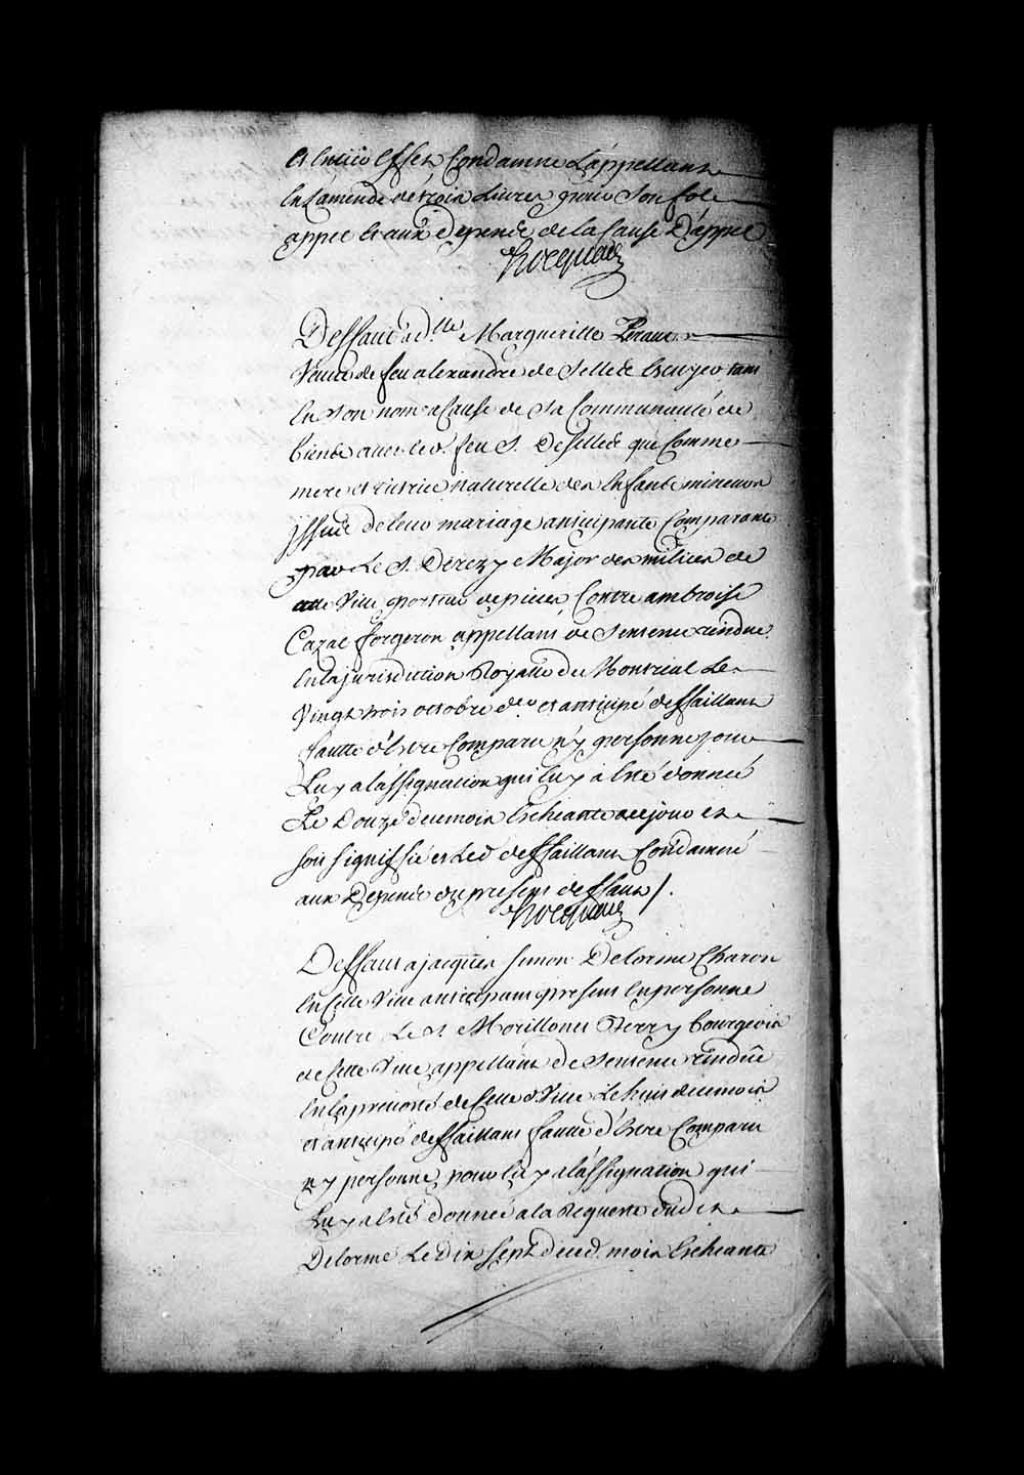 et entier effet Condamne L'appellant
En L'amende de trois Livres pour Son fol
appel et aux depends de la Cause D'appel
hocquart
Deffaut a d.lle Margueritte Peraut
Veuve de feu alexandre de Sellede Ecuyer tant
En Son nom a Cause de Sa Communauté de
biens avec led. feu S. De Sellede que Comme
mere et tutrice naturelle des Enfants mineurs
jssus de leur mariage anticipante Comparante
par Le S. Derezy Major des milices de
cette Ville porteur de pieces Contre ambroise
Cazal forgeron appellant de Sentence rendue
En la jurisdiction Royalle de Montreal Le
Vingt trois octobre d.er et anticipé deffaillant
faute d'Estre Comparu n'y personne pour
Luy a l'assignation qui luy à Eté donnée
Le Douze du mois Echeante a ce jour et
soit signiffié et Led. deffaillant Condamné
aux Depends du present deffaut /.
hocquart
Deffaut a jacques simon Delorme Charon
En Cette Ville anticipant present En personne
Contre Le S. Morillonet Berry bourgeois
de Cette Ville appellant de Sentence rendüe
En la prevosté de Cette d. Ville Le huit du mois
et anticipé deffaillant faute d'Estre Comparu
n'y personne pour luy a l'assignation qui
Luy a Eté donnée a la Requeste dudit
Delorme Le Dix Sept dud. mois Echeante